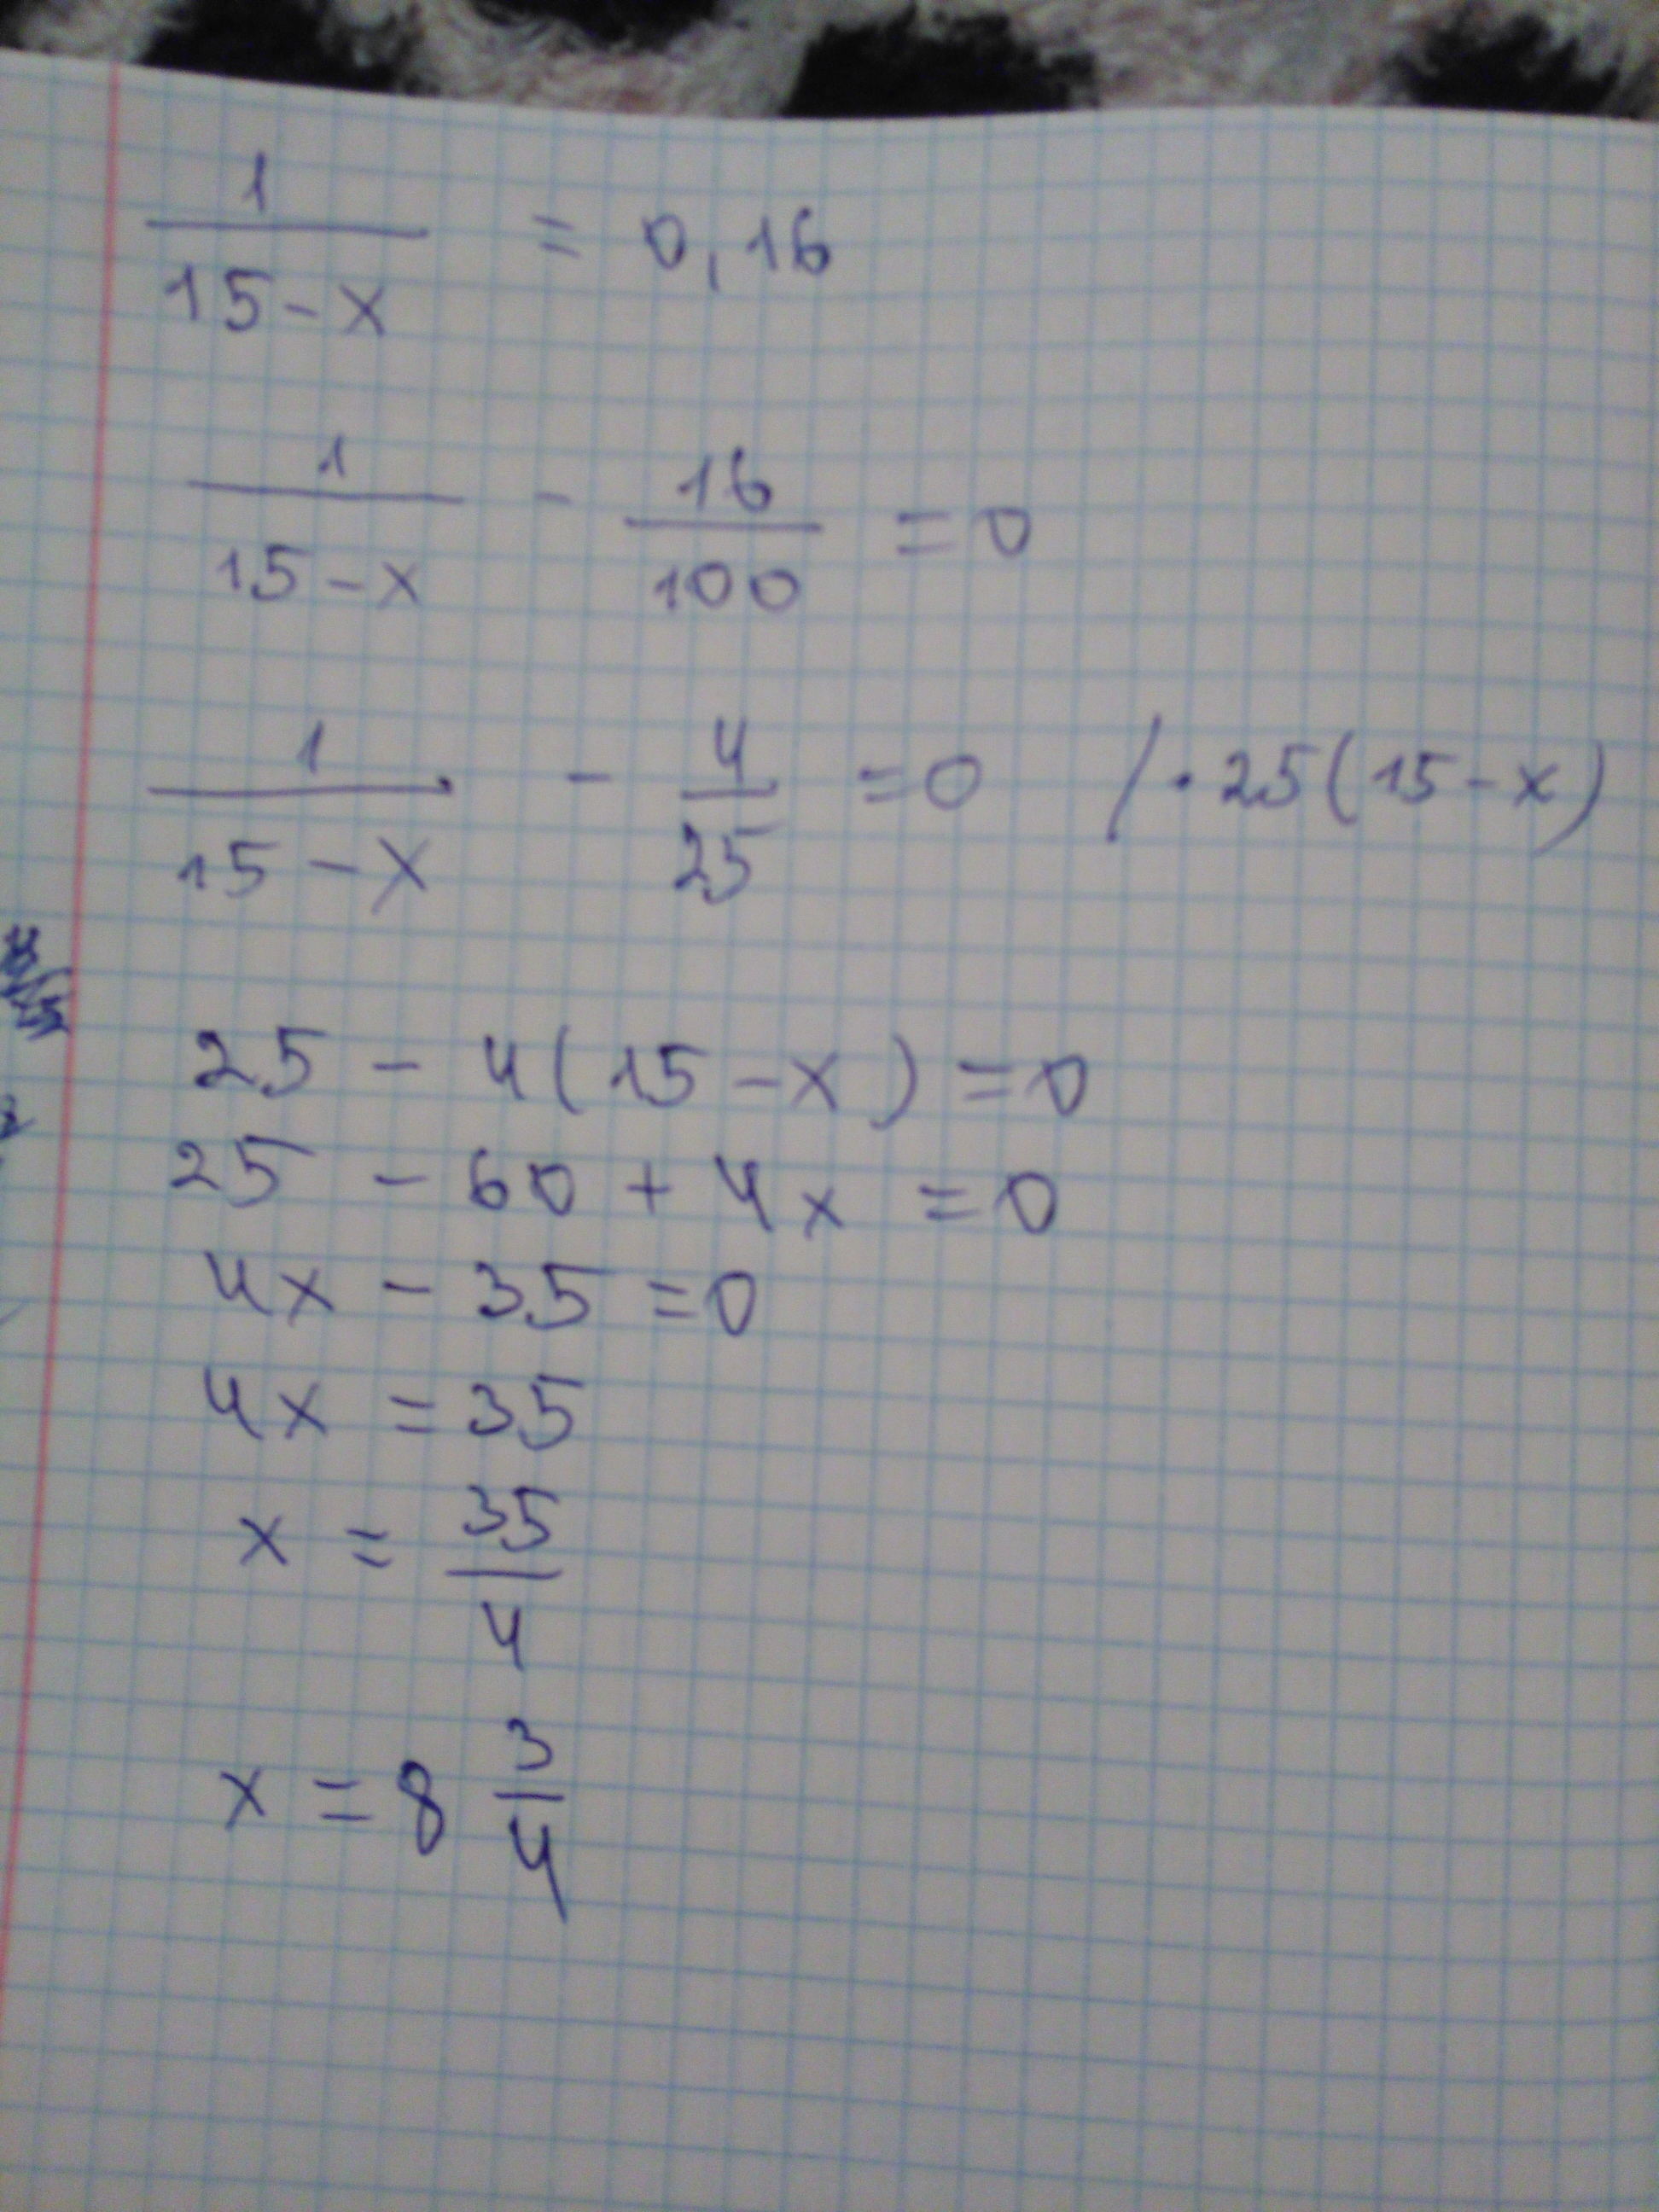 1/(15-x) = 0,16
1/(15-x) - 16/100 = 0
1/(15-x) - 4/25 = 0 /·25(15-x)
25 - 4(15-x) = 0
25 - 60 + 4x = 0
4x - 35 = 0
4x = 35
x = 35/4
x = 8 3/4